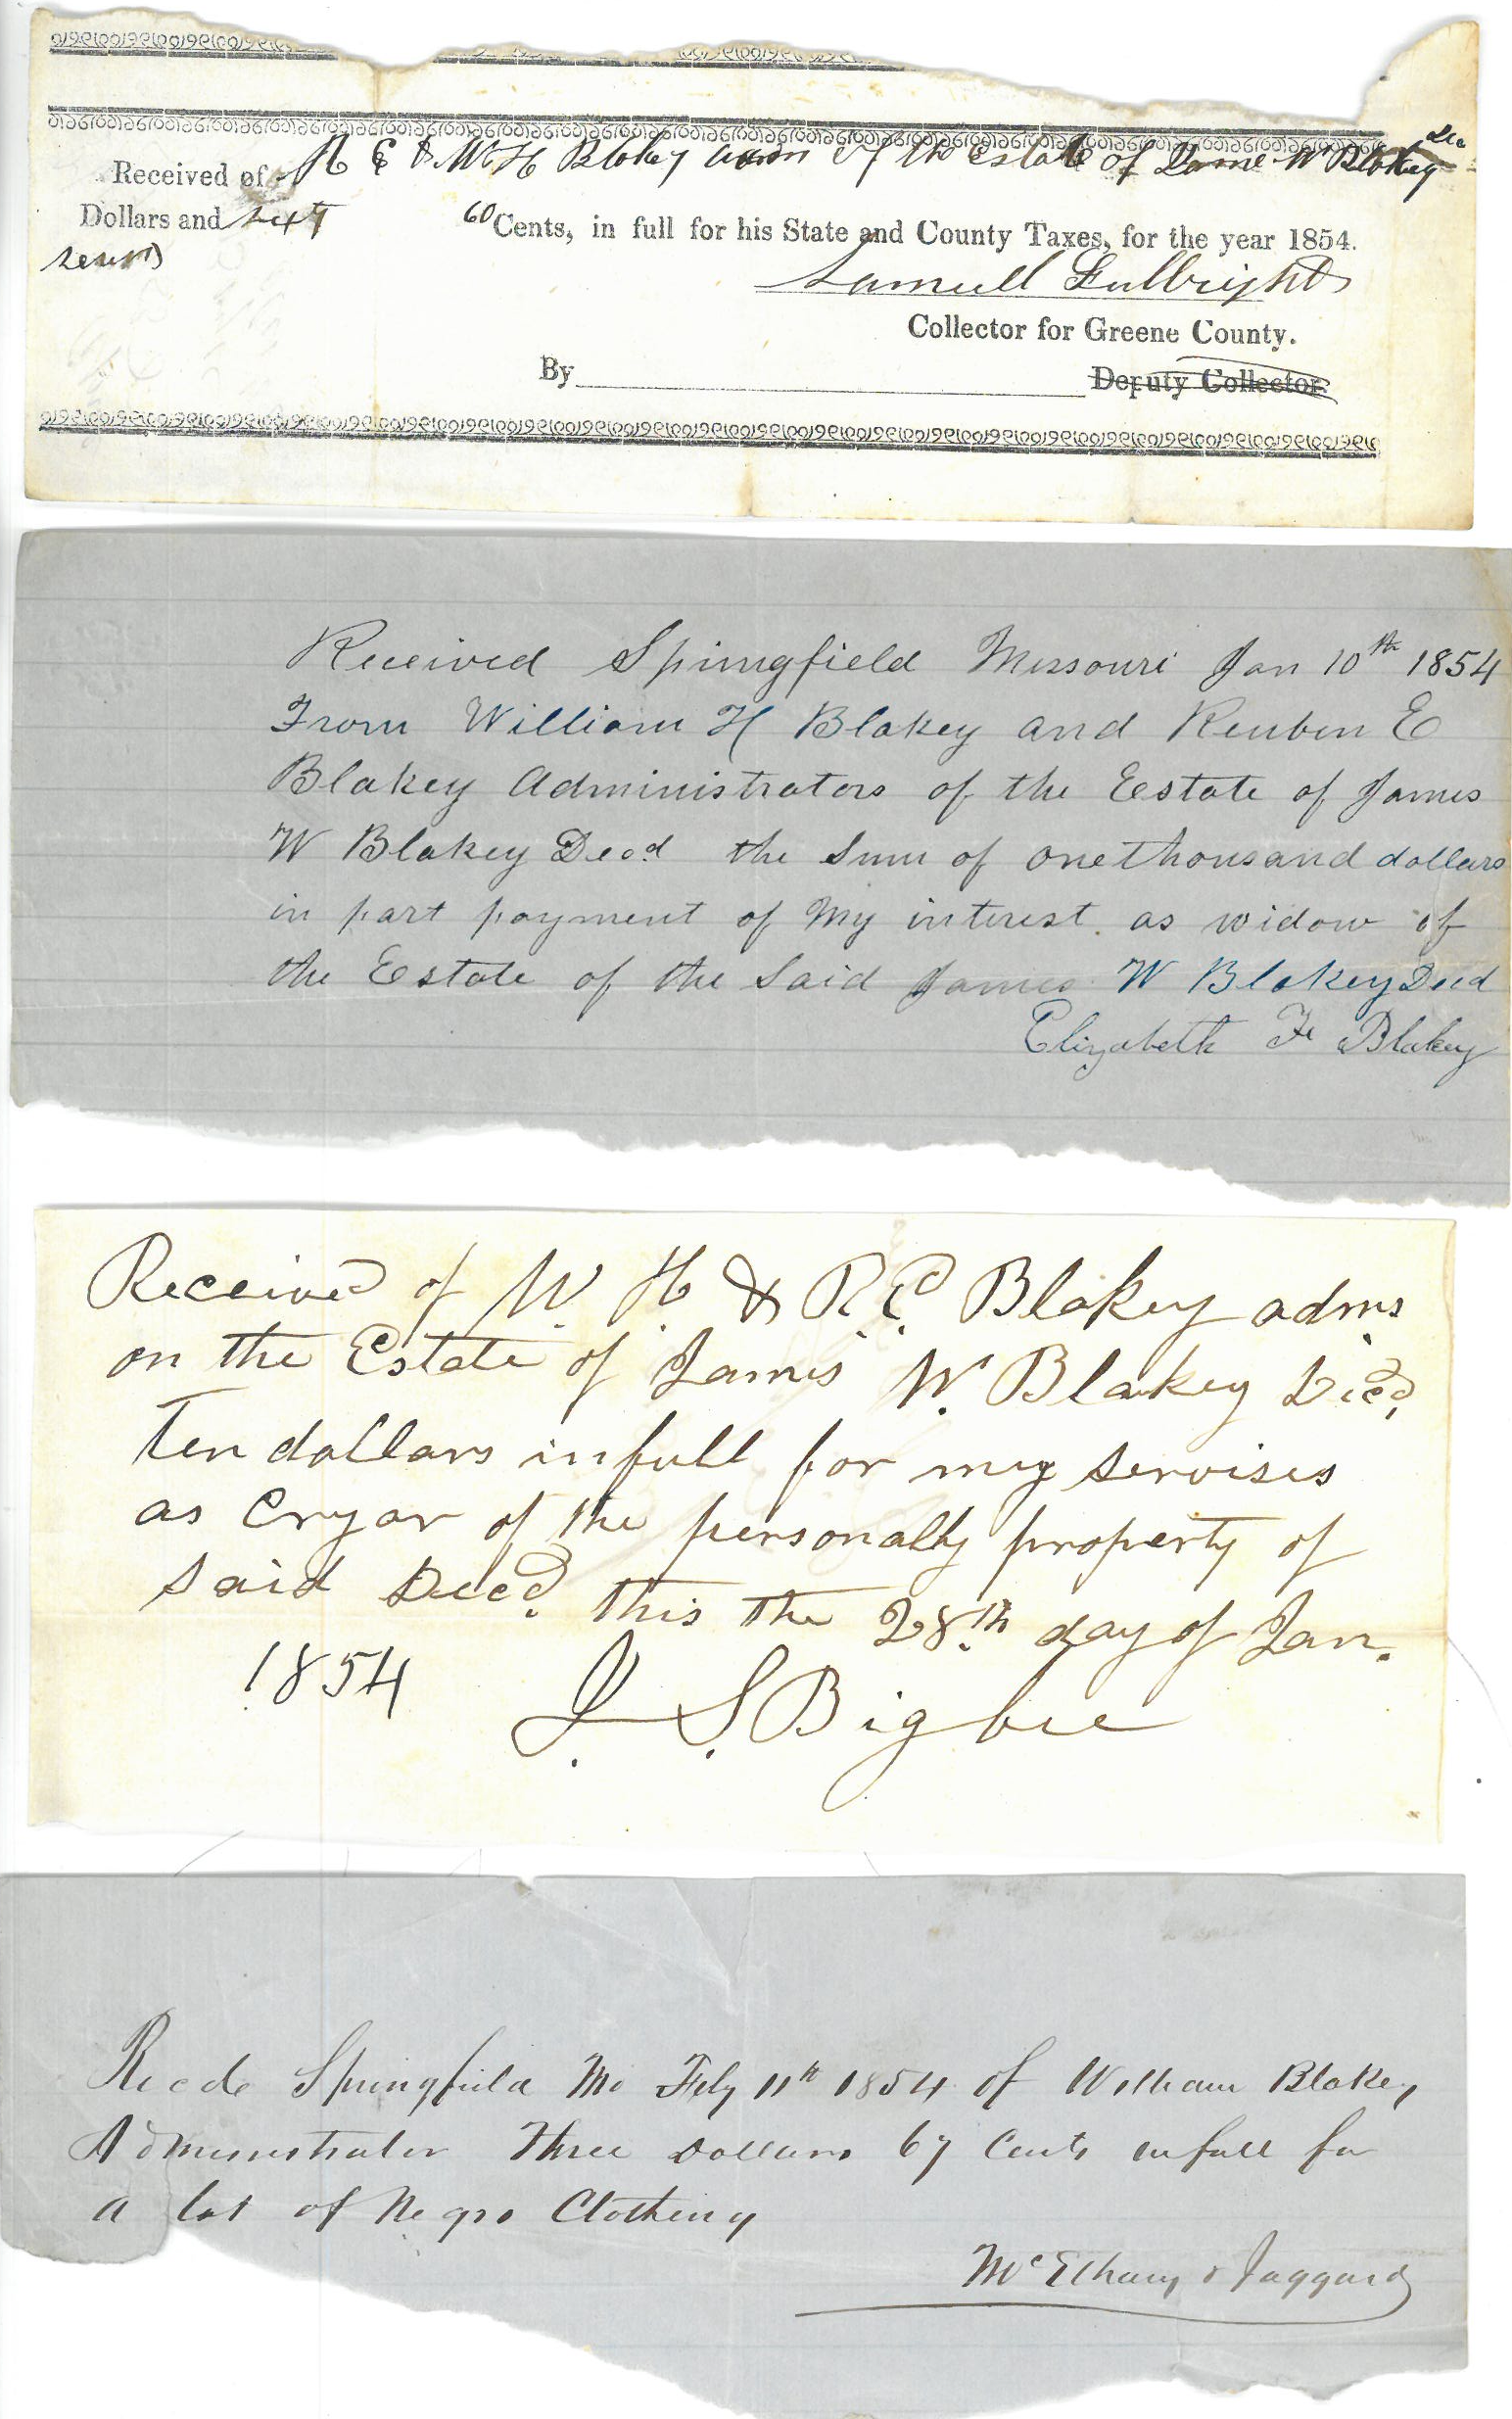 Received of R E & W H Blakey adm of the estate of Jame W Blakey Dec
Dollars and sixty 60 Cents, in full for his State and County Taxes, for the year 1854.
seven
Samuell Fulbright
Collector for Greene County.
By Deputy Collector.
Received Springfield Missouri Jan 10th 1854
From William H Blakey and Reuben E
Blakey Administrators of the Estate of James
W Blakey Decd the Sum of one thousand dollars
in part payment of My interest. as widow of
the Estate of the Said James W Blakey Decd
Elizabeth F Blakey
Received of W. H. & R. E. Blakey adms
on the Estate of James W. Blakey Decd,
Ten dollars in full for my servises
as Cryar of the personally property of
said Decd. this the 28th day of Jan.
1854 J. S. Bigbee
Recd Springfield Mo Feby 11th 1854 of William Blakey
Administrator Three Dollars 67 Cents in full for
a lot of Negro Clothing
McElhany & Jaggard